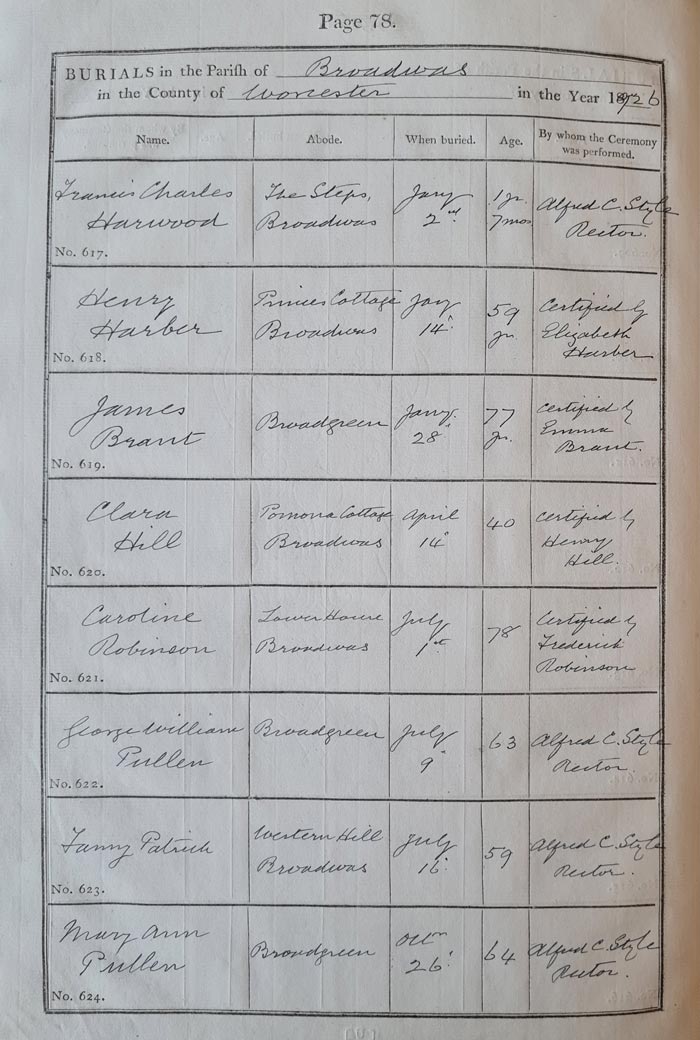 Page 78.
BURIALS in the Parish of Broadwas
in the County of Worcester in the Year 1926
Name. Abode. When buried. Age. By whom the Ceremony was performed.
Francis Charles The Steps, Jany 1 yr. Alfred C. Style
Harwood Broadwas 2nd 7mos Rector.
No. 617.
Henry Princes Cottage Jany 59 Certified by
Harber Broadwas 14 yrs. Elizabeth
Harber
No. 618.
James Broadgreen Jany. 77 Certified by
Brant 28 yrs. Emma
Brant.
No. 619.
Clara Pomona Cottage April 40 Certified by
Hill Broadwas 14 Henry
Hill.
No. 620.
Caroline Lower House July 78 Certified by
Robinson Broadwas 1st Frederick
Robinson
No. 621.
George William Broadgreen July 63 Alfred C. Style
Pullen 9 Rector.
No. 622.
Fanny Patrick Western Hill July 59 Alfred C. Style
Broadwas 16 Rector.
No. 623.
Mary Ann Broadgreen 64 Alfred C. Style
Pullen 26 Rector.
No. 624.